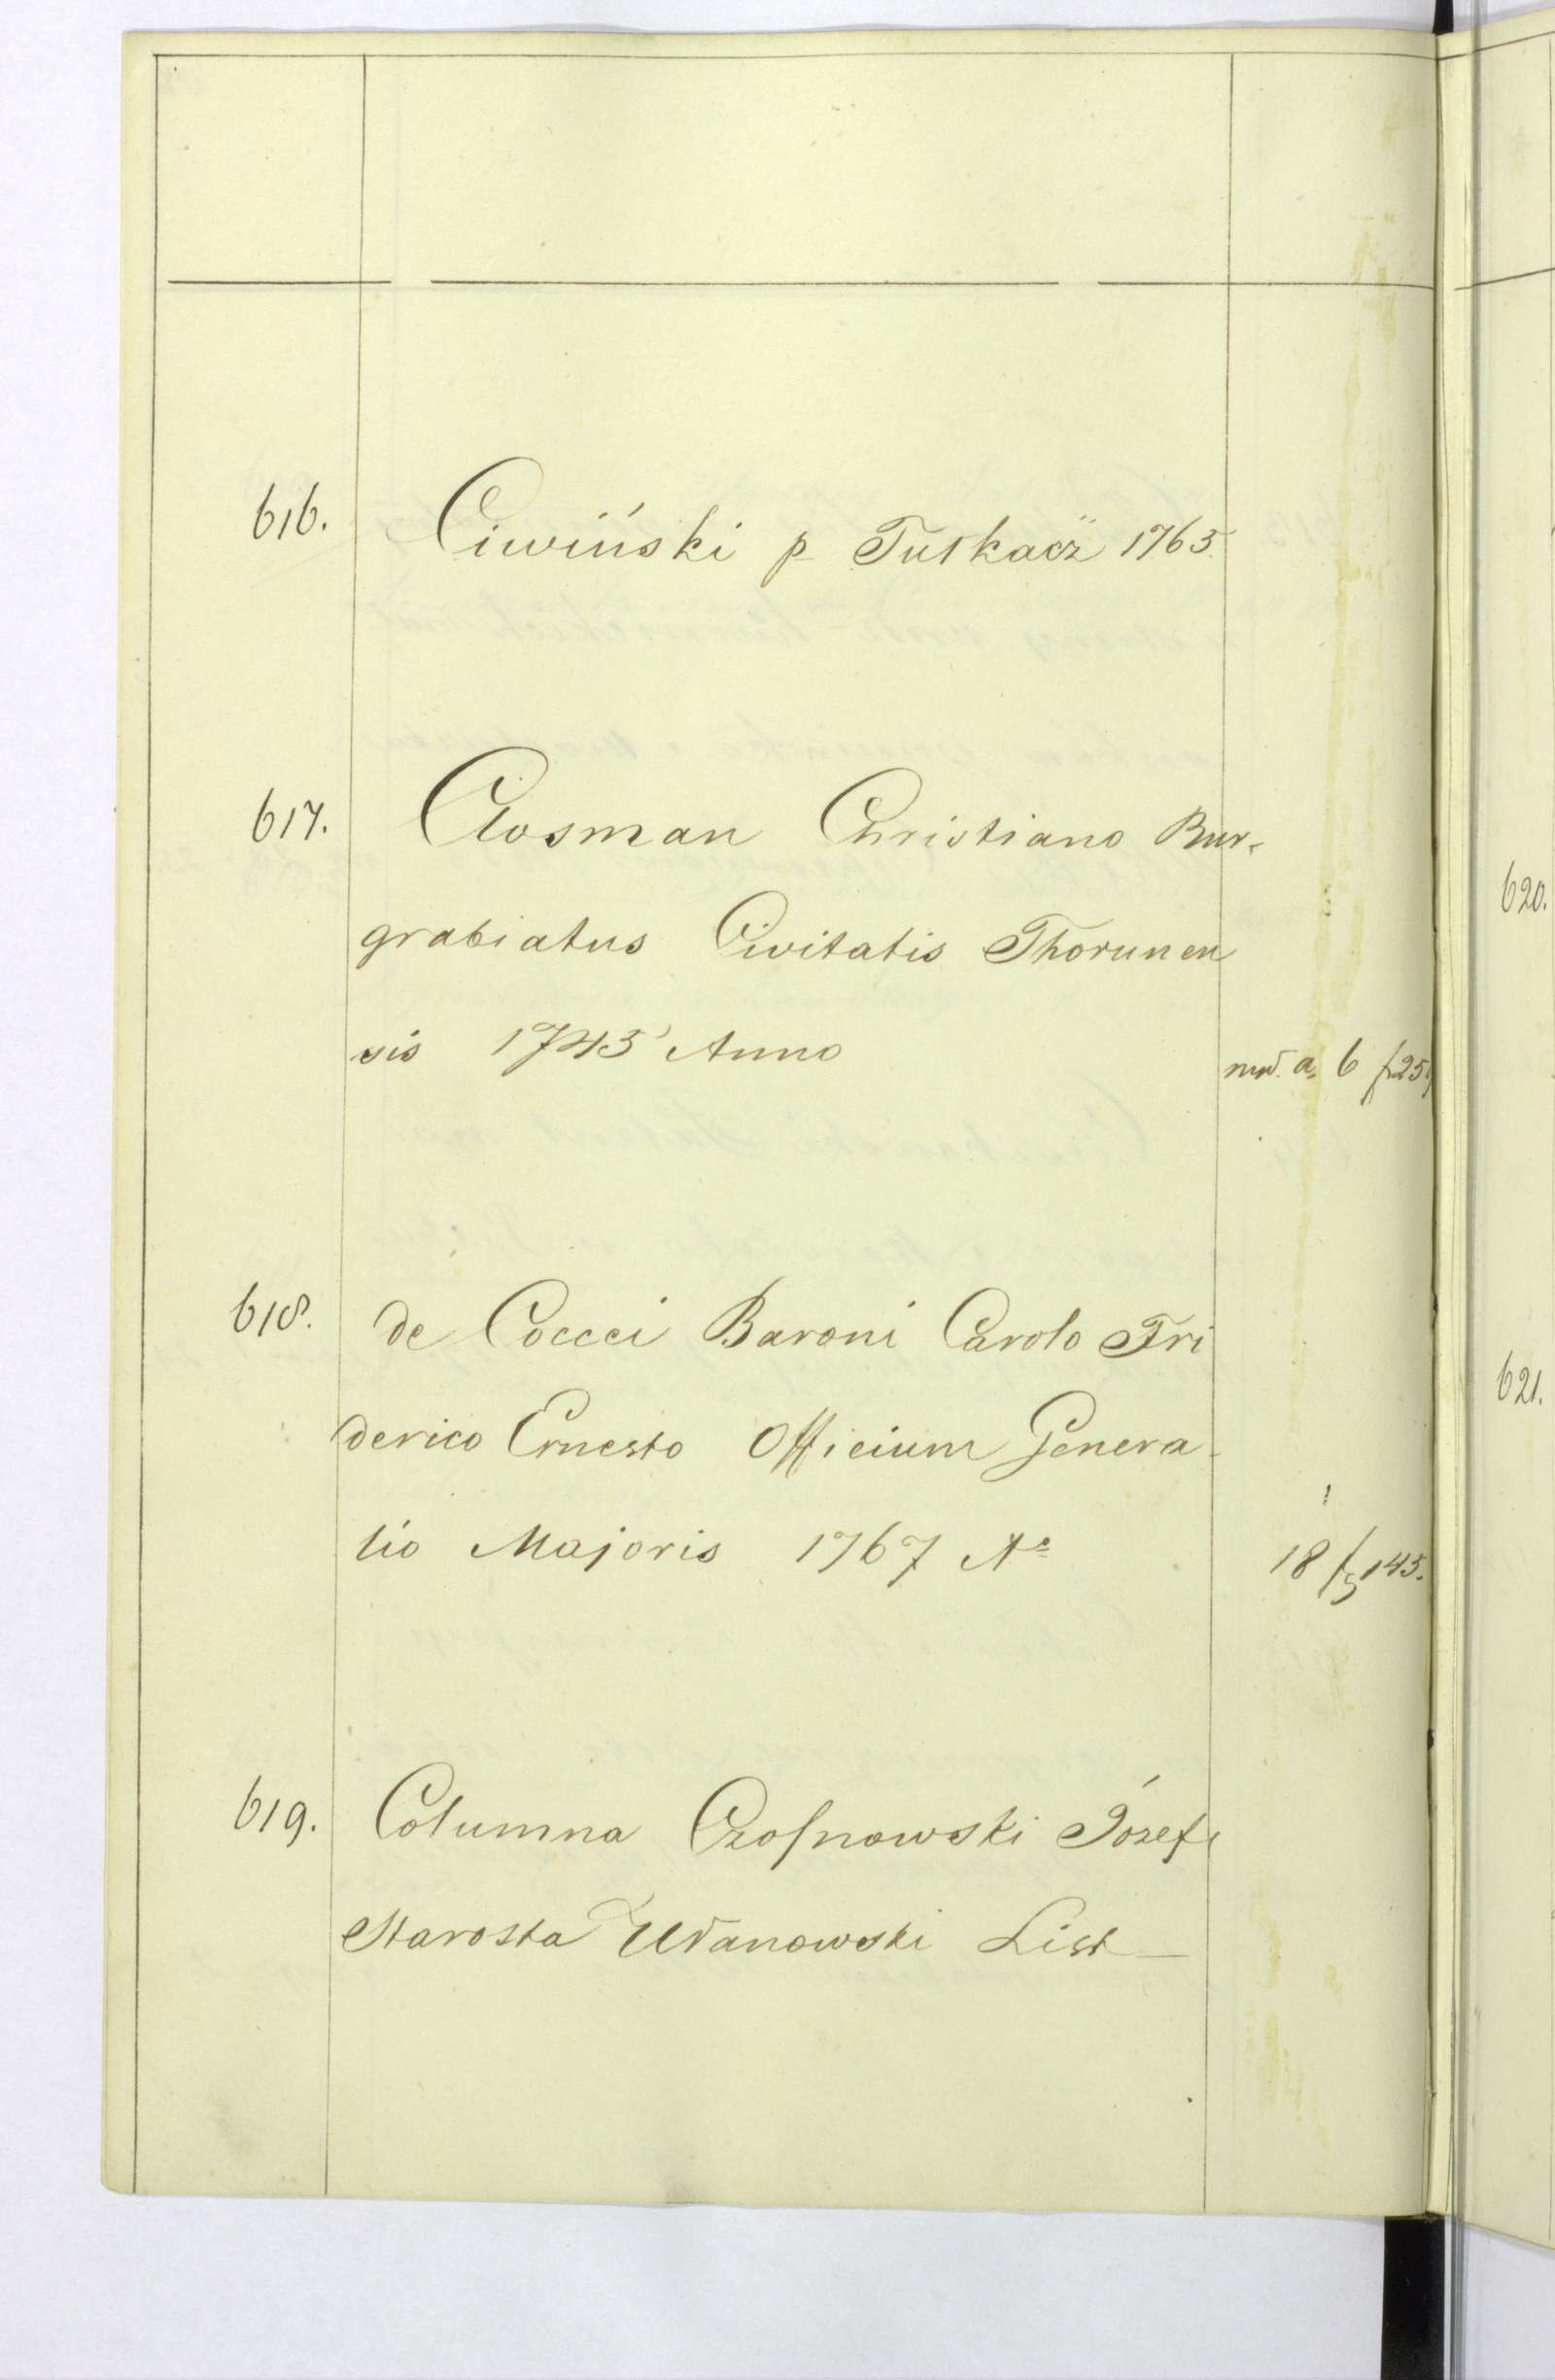 616. Ciwiński p Tutkacz 1765.
617. Closman Christiano Bur-
grabiatus Civitatis Thorunen
sis 1743 Anno
a, 6 f 25
618. de Coccei Baroni Carolo Fri
derico Ernesto Officium Genera-
lis Majoris 1767 Ao
18 f 145.
619. Columna Czosnowski Józef
Starosta Ułanowski List
620.
621.